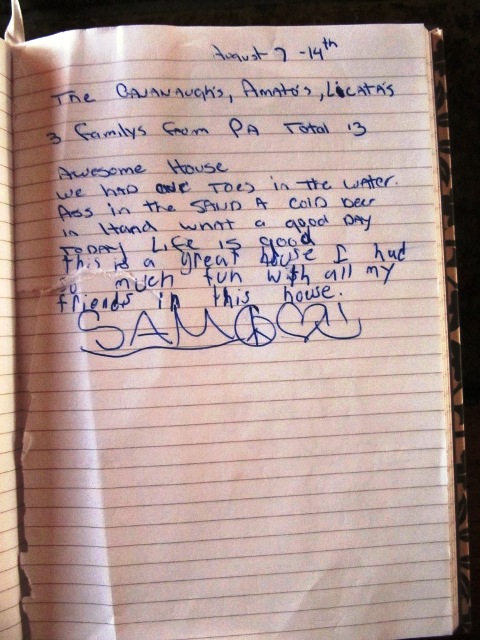 August 7 - 14th
The CAVANAUGH'S, Amato's, LICATA'S
3 familys from PA Total 13
Awesome House
we had our Toes in the water.
Ass in the SAND A cold beer
in Hand what a good DAY
TODAY Life is good
This is a great house I had
so much fun with all my
friends in this house.
SAM